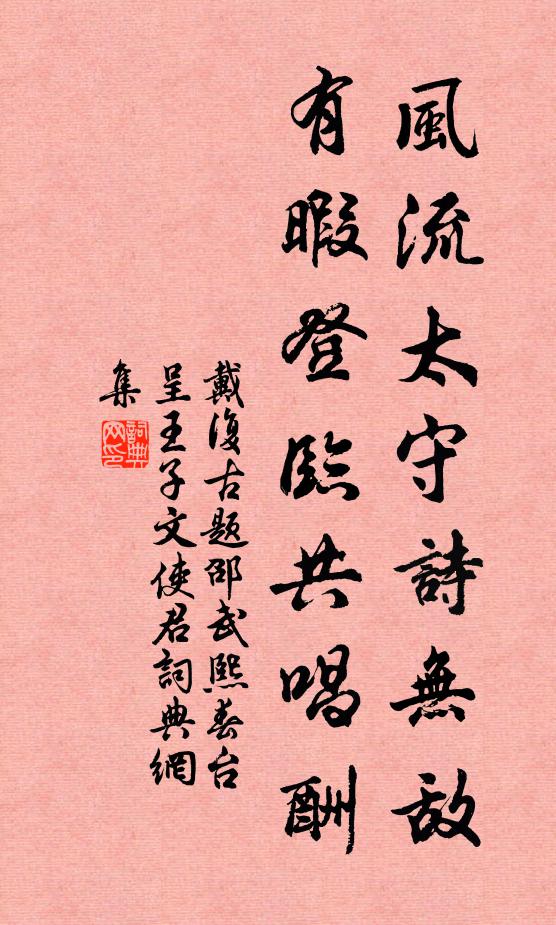 風流太守詩無敌
有暇登臨共唱酬
戴復古题邵武熙春台
呈王子文使君詞典網
集
詞典网印